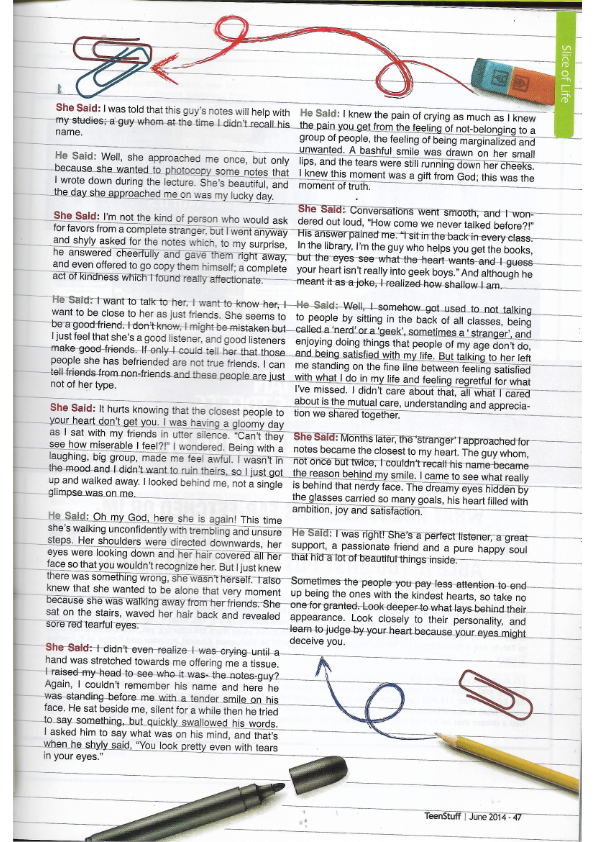 Slice of Life
She Said: I was told that this guy's notes will help with
my studies; a guy whom at the time I didn't recall his
name.
He Said: Well, she approached me once, but only
because she wanted to photocopy some notes that
I wrote down during the lecture. She's beautiful, and
the day she approached me on was my lucky day.
She Said: I'm not the kind of person who would ask
for favors from a complete stranger, but I went anyway
and shyly asked for the notes which, to my surprise,
he answered cheerfully and gave them right away,
and even offered to go copy them himself; a complete
act of kindness which I found really affectionate.
He Said: I want to talk to her, I want to know her, I
want to be close to her as just friends. She seems to
be a good friend. I don't know, I might be mistaken but
I just feel that she's a good listener, and good listeners
make good friends. If only I could tell her that those
people she has befriended are not true friends. I can
tell friends from non-friends and these people are just
not of her type.
She Said: It hurts knowing that the closest people to
your heart don't get you. I was having a gloomy day
as I sat with my friends in utter silence. "Can't they
see how miserable I feel?!" I wondered. Being with a
laughing, big group, made me feel awful. I wasn't in
the mood and I didn't want to ruin theirs, so I just got
up and walked away. I looked behind me, not a single
glimpse was on me.
He Said: Oh my God, here she is again! This time
she's walking unconfidently with trembling and unsure
steps. Her shoulders were directed downwards, her
eyes were looking down and her hair covered all her
face so that you wouldn't recognize her. But I just knew
there was something wrong, she wasn't herself. I also
knew that she wanted to be alone that very moment
because she was walking away from her friends. She
sat on the stairs, waved her hair back and revealed
sore red tearful eyes.
She Said: I didn't even realize I was crying until a
hand was stretched towards me offering me a tissue.
I raised my head to see who it was- the notes-guy?
Again, I couldn't remember his name and here he
was standing before me with a tender smile on his
face. He sat beside me, silent for a while then he tried
to say something, but quickly swallowed his words.
I asked him to say what was on his mind, and that's
when he shyly said, "You look pretty even with tears
in your eyes."
He Said: I knew the pain of crying as much as I knew
the pain you get from the feeling of not-belonging to a
group of people, the feeling of being marginalized and
unwanted. A bashful smile was drawn on her small
lips, and the tears were still running down her cheeks.
I knew this moment was a gift from God; this was the
moment of truth.
She Said: Conversations went smooth, and I won-
dered out loud, "How come we never talked before?!"
His answer pained me. "I sit in the back in every class.
In the library, I'm the guy who helps you get the books,
but the eyes see what the heart wants and I guess
your heart isn't really into geek boys." And although he
meant it as a joke, I realized how shallow I am.
He Said: Well, I somehow got used to not talking
to people by sitting in the back of all classes, being
called a 'nerd' or a 'geek', sometimes a ' stranger', and
enjoying doing things that people of my age don't do,
and being satisfied with my life. But talking to her left
me standing on the fine line between feeling satisfied
with what I do in my life and feeling regretful for what
I've missed. I didn't care about that, all what I cared
about is the mutual care, understanding and apprecia-
tion we shared together.
She Said: Months later, the 'stranger' I approached for
notes became the closest to my heart. The guy whom,
not once but twice, I couldn't recall his name became
the reason behind my smile. I came to see what really
is behind that nerdy face. The dreamy eyes hidden by
the glasses carried so many goals, his heart filled with
ambition, joy and satisfaction.
He Said: I was right! She's a perfect listener, a great
support, a passionate friend and a pure happy soul
that hid a lot of beautiful things inside.
Sometimes the people you pay less attention to end
up being the ones with the kindest hearts, so take no
one for granted. Look deeper to what lays behind their
appearance. Look closely to their personality, and
learn to judge by your heart because your eyes might
deceive you.
TeenStuff | June 2014 - 47